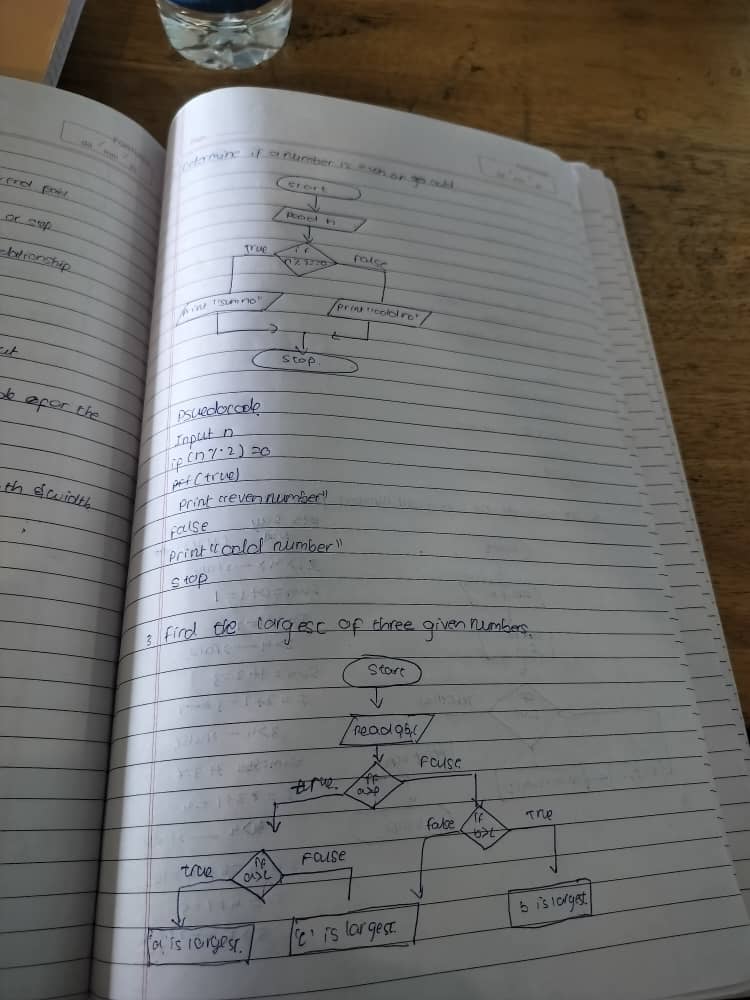 end post
or stop
relationship
the
width
determine if a number is even or odd
Start
Read n
if
true
false
print "odd no"
Stop
psuedocode
Input n
if (n % 2) = 0
(true)
print "even number"
False
print "odd number"
Stop
3 find the largest of three given numbers.
Start
read a,b,c
if
a>b
true.
False
if
b>c
false
True
if
a>c
true
False
'a' is largest.
'c' is largest.
b is largest.